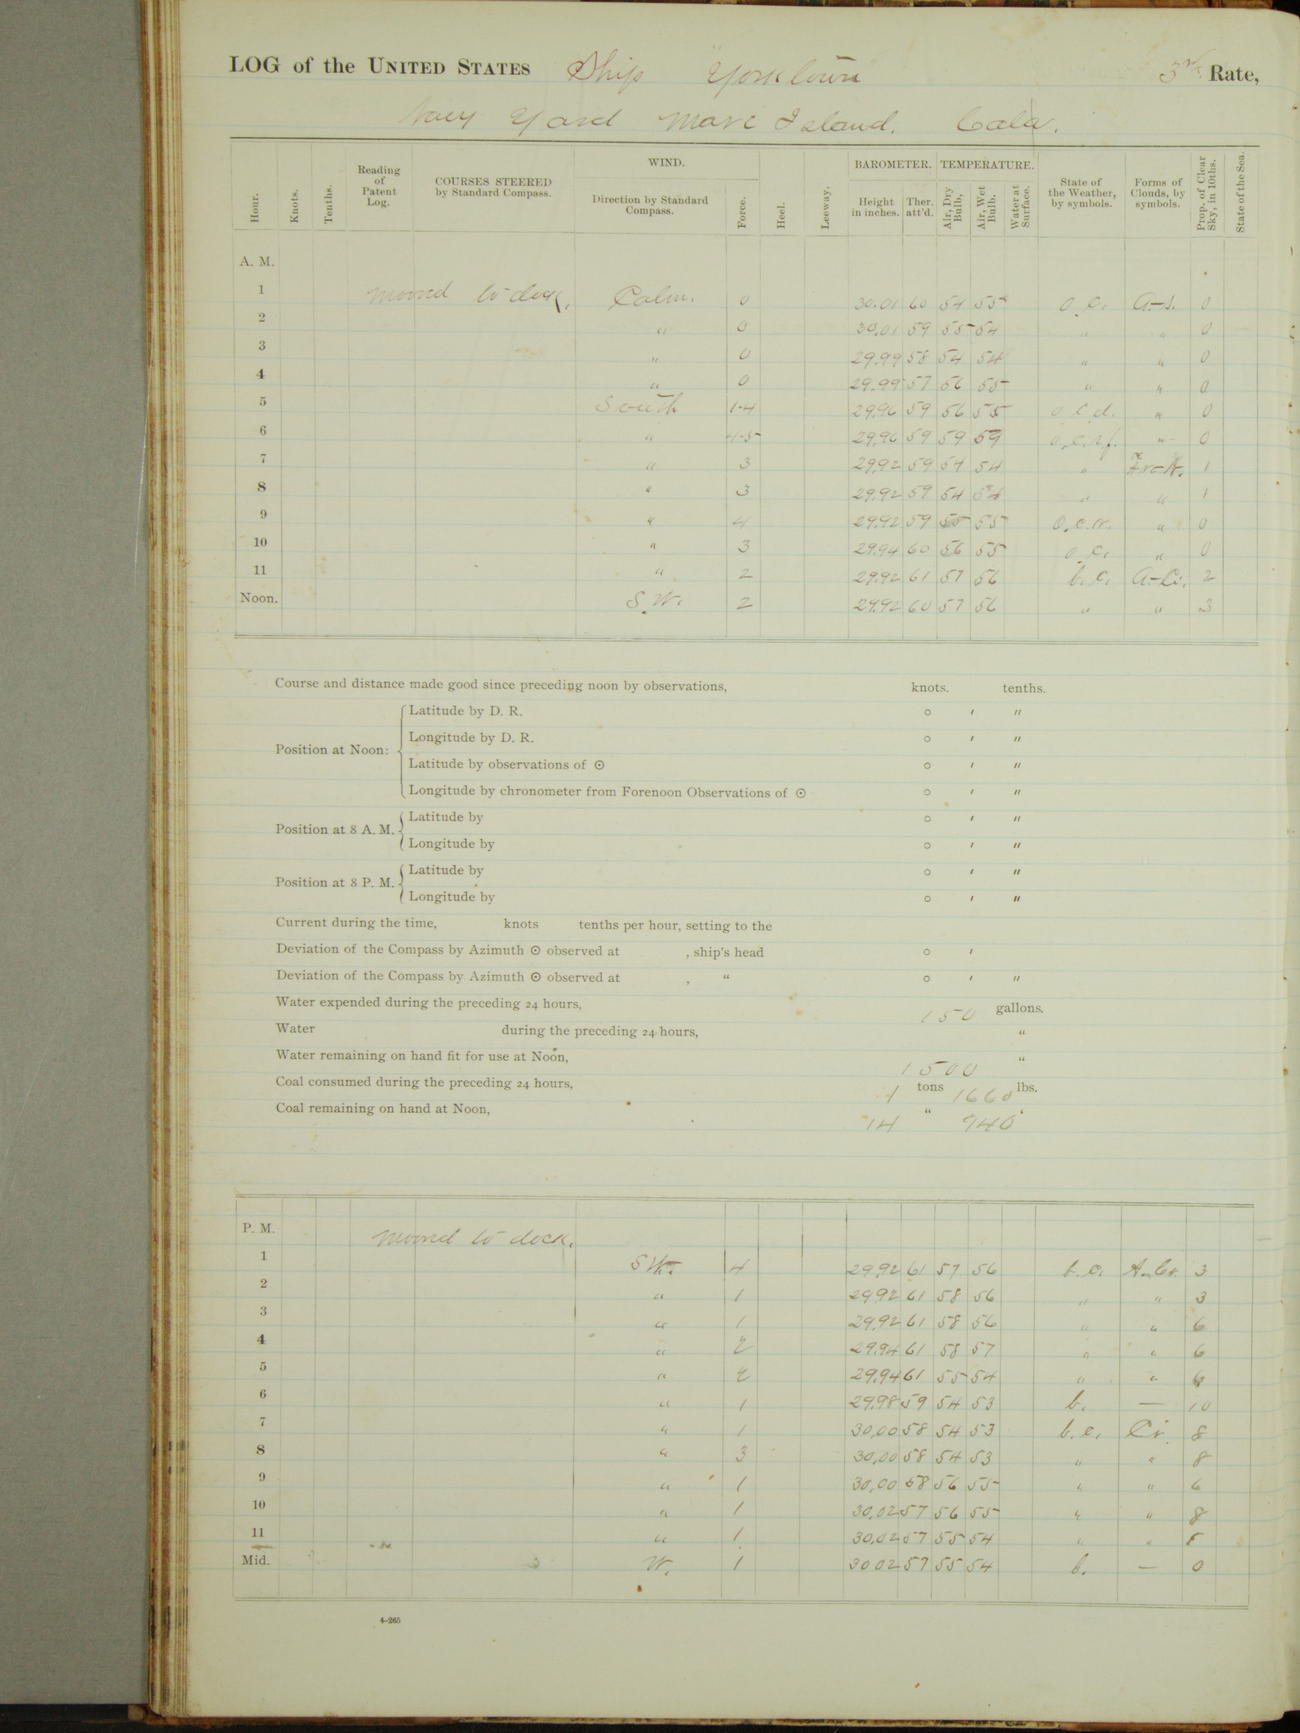 LOG of the UNITED STATES Ship "Yorktown 3rd Rate,
Navy Yard Mare Island, Cala.
Hour. Knots. Tenths. Reading of Patent Log. COURSES STEERED by Standard Compass. WIND. Direction by Standard Compass. Force. Heel. Leeway. BAROMETER. Height in inches. Ther. att'd. TEMPERATURE. Air, Dry Bulb. Air, Wet Bulb. Water at Surface. State of the Weather, by symbols. Forms of Clouds, by symbols. Prop. of Clear Sky, in 10ths. State of the Sea.
A. M.
1 Moored to dock. Calm. 0 30.01 60 54 55 o.c. A-s. 0
2 " 0 30.01 59 55 54 " " 0
3 " 0 29.99 58 54 54 " " 0
4 " 0 29.99 57 56 55 " " 0
5 South 1-4 29.96 59 56 55 o.c.d. " 0
6 " 4-5 29.96 59 59 59 " 0
7 " 3 29.92 59 54 54 " Fr-N. 1
8 " 3 29.92 59 54 54 " " 1
9 " 4 29.92 59 55 55 o.c.r. " 0
10 " 3 29.94 60 56 55 o.c. " 0
11 " 2 29.92 61 57 56 b.c. A-Cu. 2
Noon. S.W. 2 29.92 60 57 56 " " 3
Course and distance made good since preceding noon by observations, knots. tenths.
Position at Noon: Latitude by D. R. ° ′ ″
Longitude by D. R. ° ′ ″
Latitude by observations of ☉ ° ′ ″
Longitude by chronometer from Forenoon Observations of ☉ ° ′ ″
Position at 8 A. M. Latitude by ° ′ ″
Longitude by ° ′ ″
Position at 8 P. M. Latitude by ° ′ ″
Longitude by ° ′ ″
Current during the time, knots tenths per hour, setting to the
Deviation of the Compass by Azimuth ☉ observed at , ship's head ° ′
Deviation of the Compass by Azimuth ☉ observed at , " ° ′ ″
Water expended during the preceding 24 hours, 150 gallons.
Water during the preceding 24 hours, "
Water remaining on hand fit for use at Noon, 1500 "
Coal consumed during the preceding 24 hours, 1 tons 1660 lbs.
Coal remaining on hand at Noon, 14 " 940 "
P. M. Moored to dock.
1 SW. 4 29.92 61 57 56 b.c. A-Cu. 3
2 " 1 29.92 61 58 56 " " 3
3 " 1 29.92 61 58 56 " " 6
4 " 2 29.94 61 58 57 " " 6
5 " 2 29.94 61 55 54 " " 6
6 " 1 29.98 59 54 53 b. — 10
7 " 1 30.00 58 54 53 b.c. Ci. 8
8 " 3 30.00 58 54 53 " " 8
9 " 1 30.00 58 56 55 " " 6
10 " 1 30.02 57 56 55 " " 8
11 " 1 30.02 57 55 54 " "
Mid. W. 1 30 02 57 55 54 b. — 0
4-265